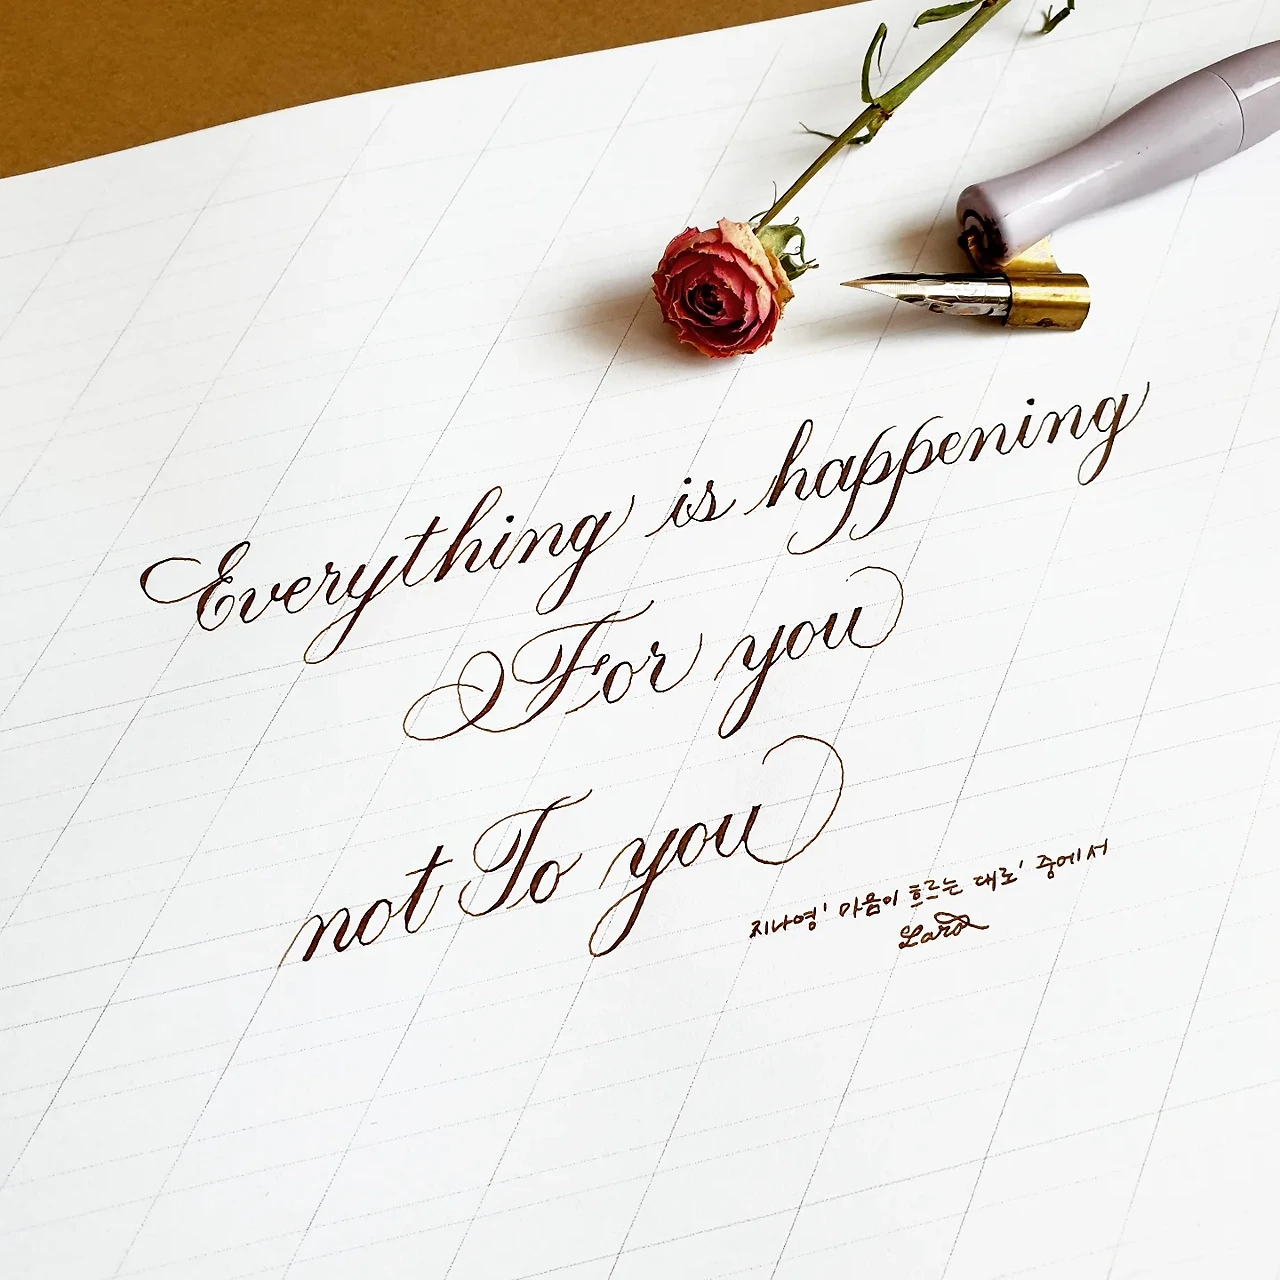 Everything is happening
For you
not To you
지나영' 마음이 흐르는 대로' 중에서
Lara